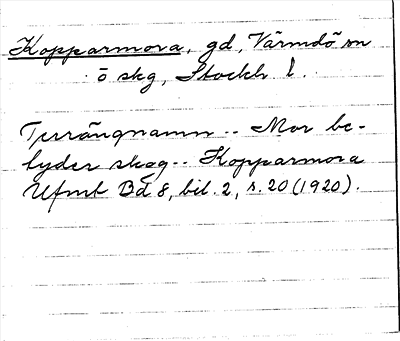 Kopparmora, gd, Värmdö sn
ö skg, Stockh l.
Terrängnamn -- Mor be-
tyder skog -- Kopparmora
Ufmt Bd 8, bil. 2, s. 20 (1920).